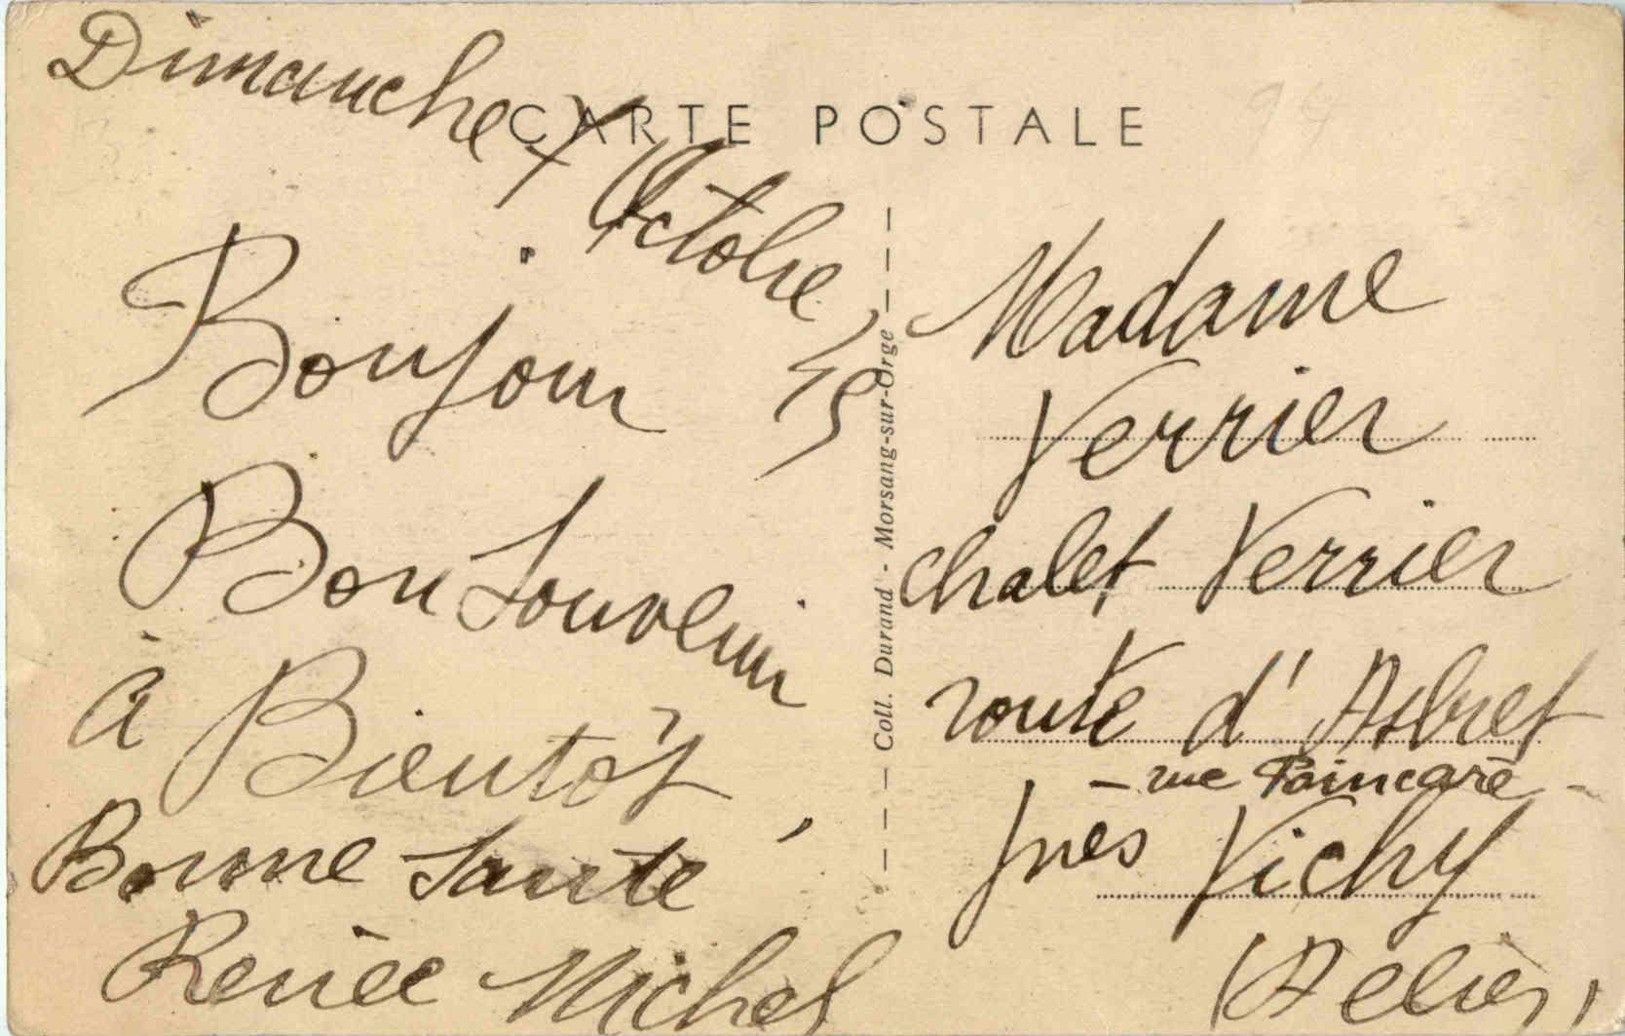 CARTE POSTALE
Dimanche 7 Octobre
Bonjour
Bon Souvenir
à Bientôt
Bonne Santé
Renée Michel
Coll. Durand - Morsang-sur-Orge
Madame
Verrier
chalet Verrier
route d'Abret
- rue Poincaré -
près Vichy
(Allier)